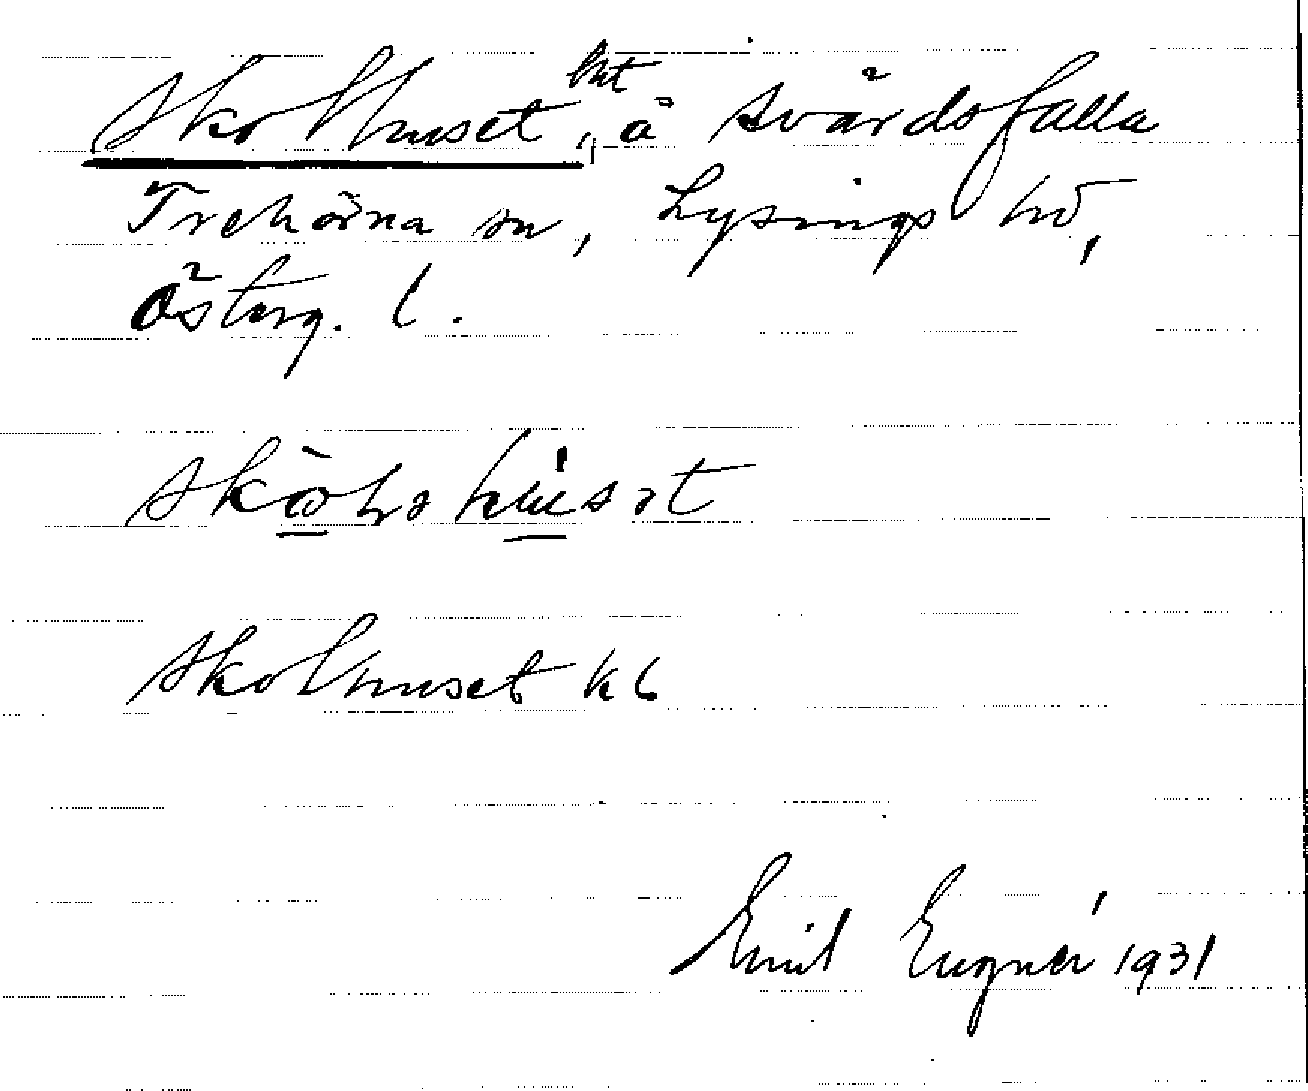 Skolhuset, lht å Svärdsfalla
Trehörna sn, Lysings hd,
Österg. l.
skọ̀lhúsət
Skolhuset kl
Emil Eugnér 1931